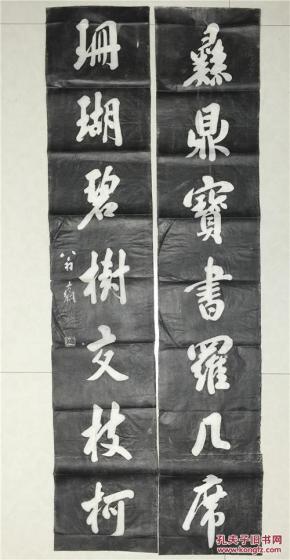 彝鼎寶書羅几席
珊瑚碧樹交枝柯
孔夫子旧书网